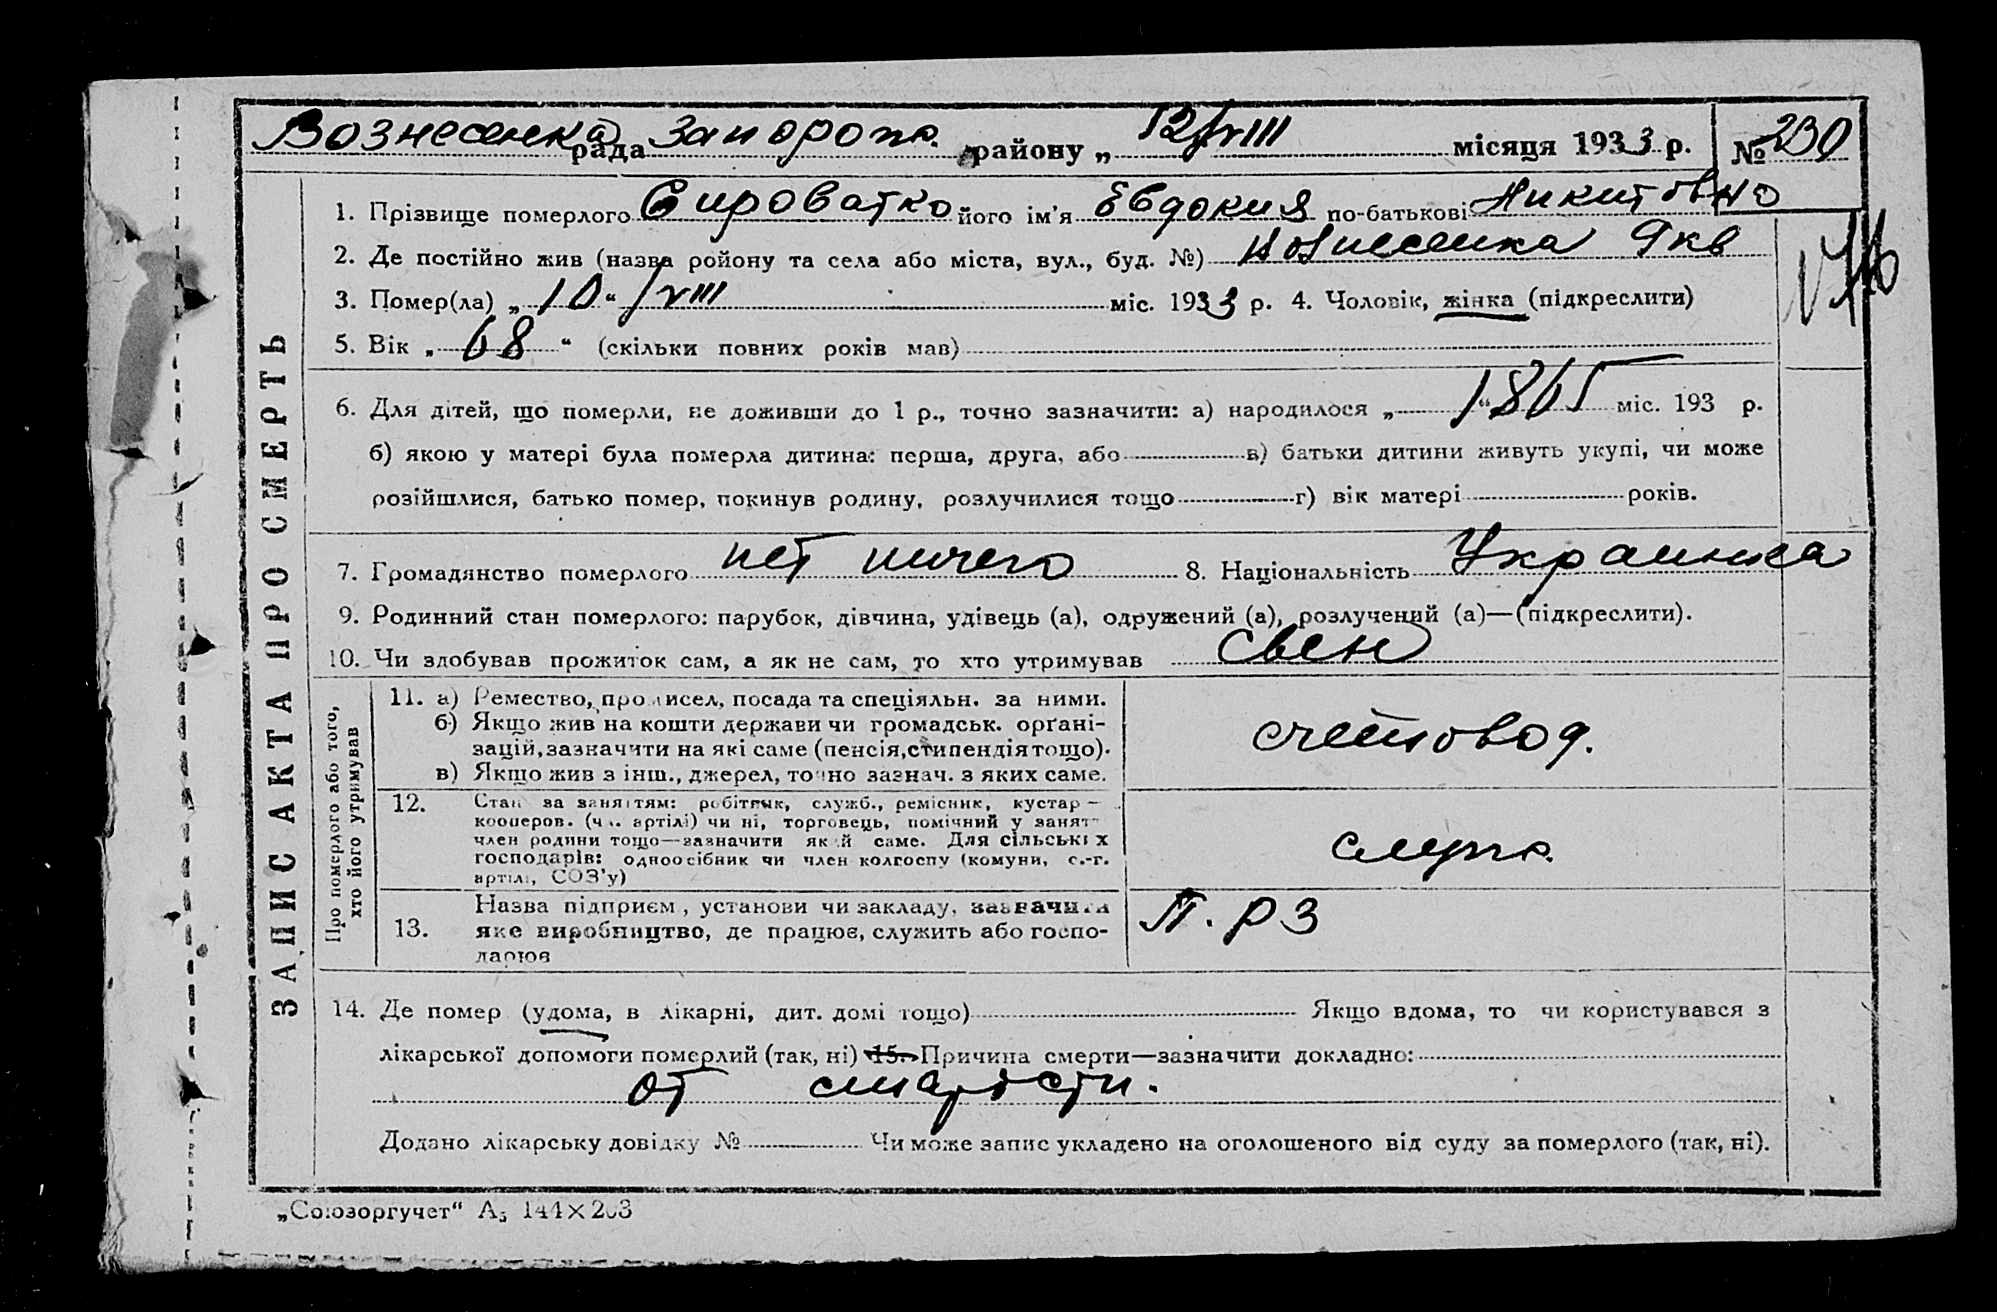 Вознесенка рада Запорож. району „ 12/VIII місяця 1933 р. № 230
ЗАПИС АКТА ПРО СМЕРТЬ
1. Прізвище померлого Сироватко його ім’я Євдокия по-батькові Никитовно
2. Де постійно жив (назва ройону та села або міста, вул., буд. №) Вознесенка 9 кв
3. Помер(ла) „ 10 “ /VIII міс. 1933 р. 4. Чоловік, жінка (підкреслити)
5. Вік „ 68 “ (скільки повних років мав)
6. Для дітей, що померли, не доживши до 1 р., точно зазначити: а) народилося „ “ 1865 міс. 193 р.
б) якою у матері була померла дитина: перша, друга, або в) батьки дитини живуть укупі, чи може
розійшлися, батько помер, покинув родину, розлучилися тощо г) вік матері років.
7. Громадянство померлого нет ничего 8. Національність Украинка
9. Родинний стан померлого: парубок, дівчина, удівець (а), одружений (а), розлучений (а)—(підкреслити).
10. Чи здобував прожиток сам, а як не сам, то хто утримував
Про померлого або того, хто його утримував
11. а) Ремество, промисел, посада та спеціяльн. за ними.
б) Якщо жив на кошти держави чи громадськ. орґані-
зацій, зазначити на які саме (пенсія, стипендія тощо).
в) Якщо жив з інш., джерел, точно зазнач. з яких саме.
счетовод.
12. Стан за заняттям: робітник, служб., ремісник, кустар —
кооперов. (чл. артілі) чи ні, торговець, помічний у занятт
член родини тощо—зазначити який саме. Для сільських
господарів: одноосібник чи член колгоспу (комуни, с.-г.
артілі, СОЗ’у)
служ.
13. Назва підприєм, установи чи закладу, зазначити
яке виробництво, де працює, служить або госпо-
дарює
П. РЗ
14. Де помер (удома, в лікарні, дит. домі тощо) Якщо вдома, то чи користувався з
лікарської допомоги померлий (так, ні) 15. Причина смерти—зазначити докладно:
от старости.
Додано лікарську довідку № Чи може запис укладено на оголошеного від суду за померлого (так, ні).
„Союзоргучет“ А5 144×203